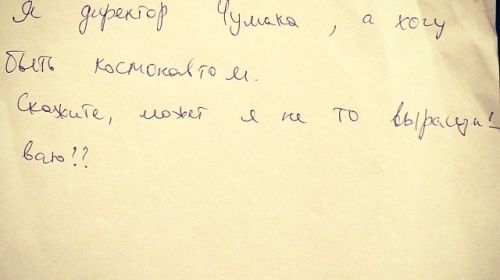 Я директор Чумака, а хочу
быть космонавтом.
Скажите, может я не то выращи-
ваю!?